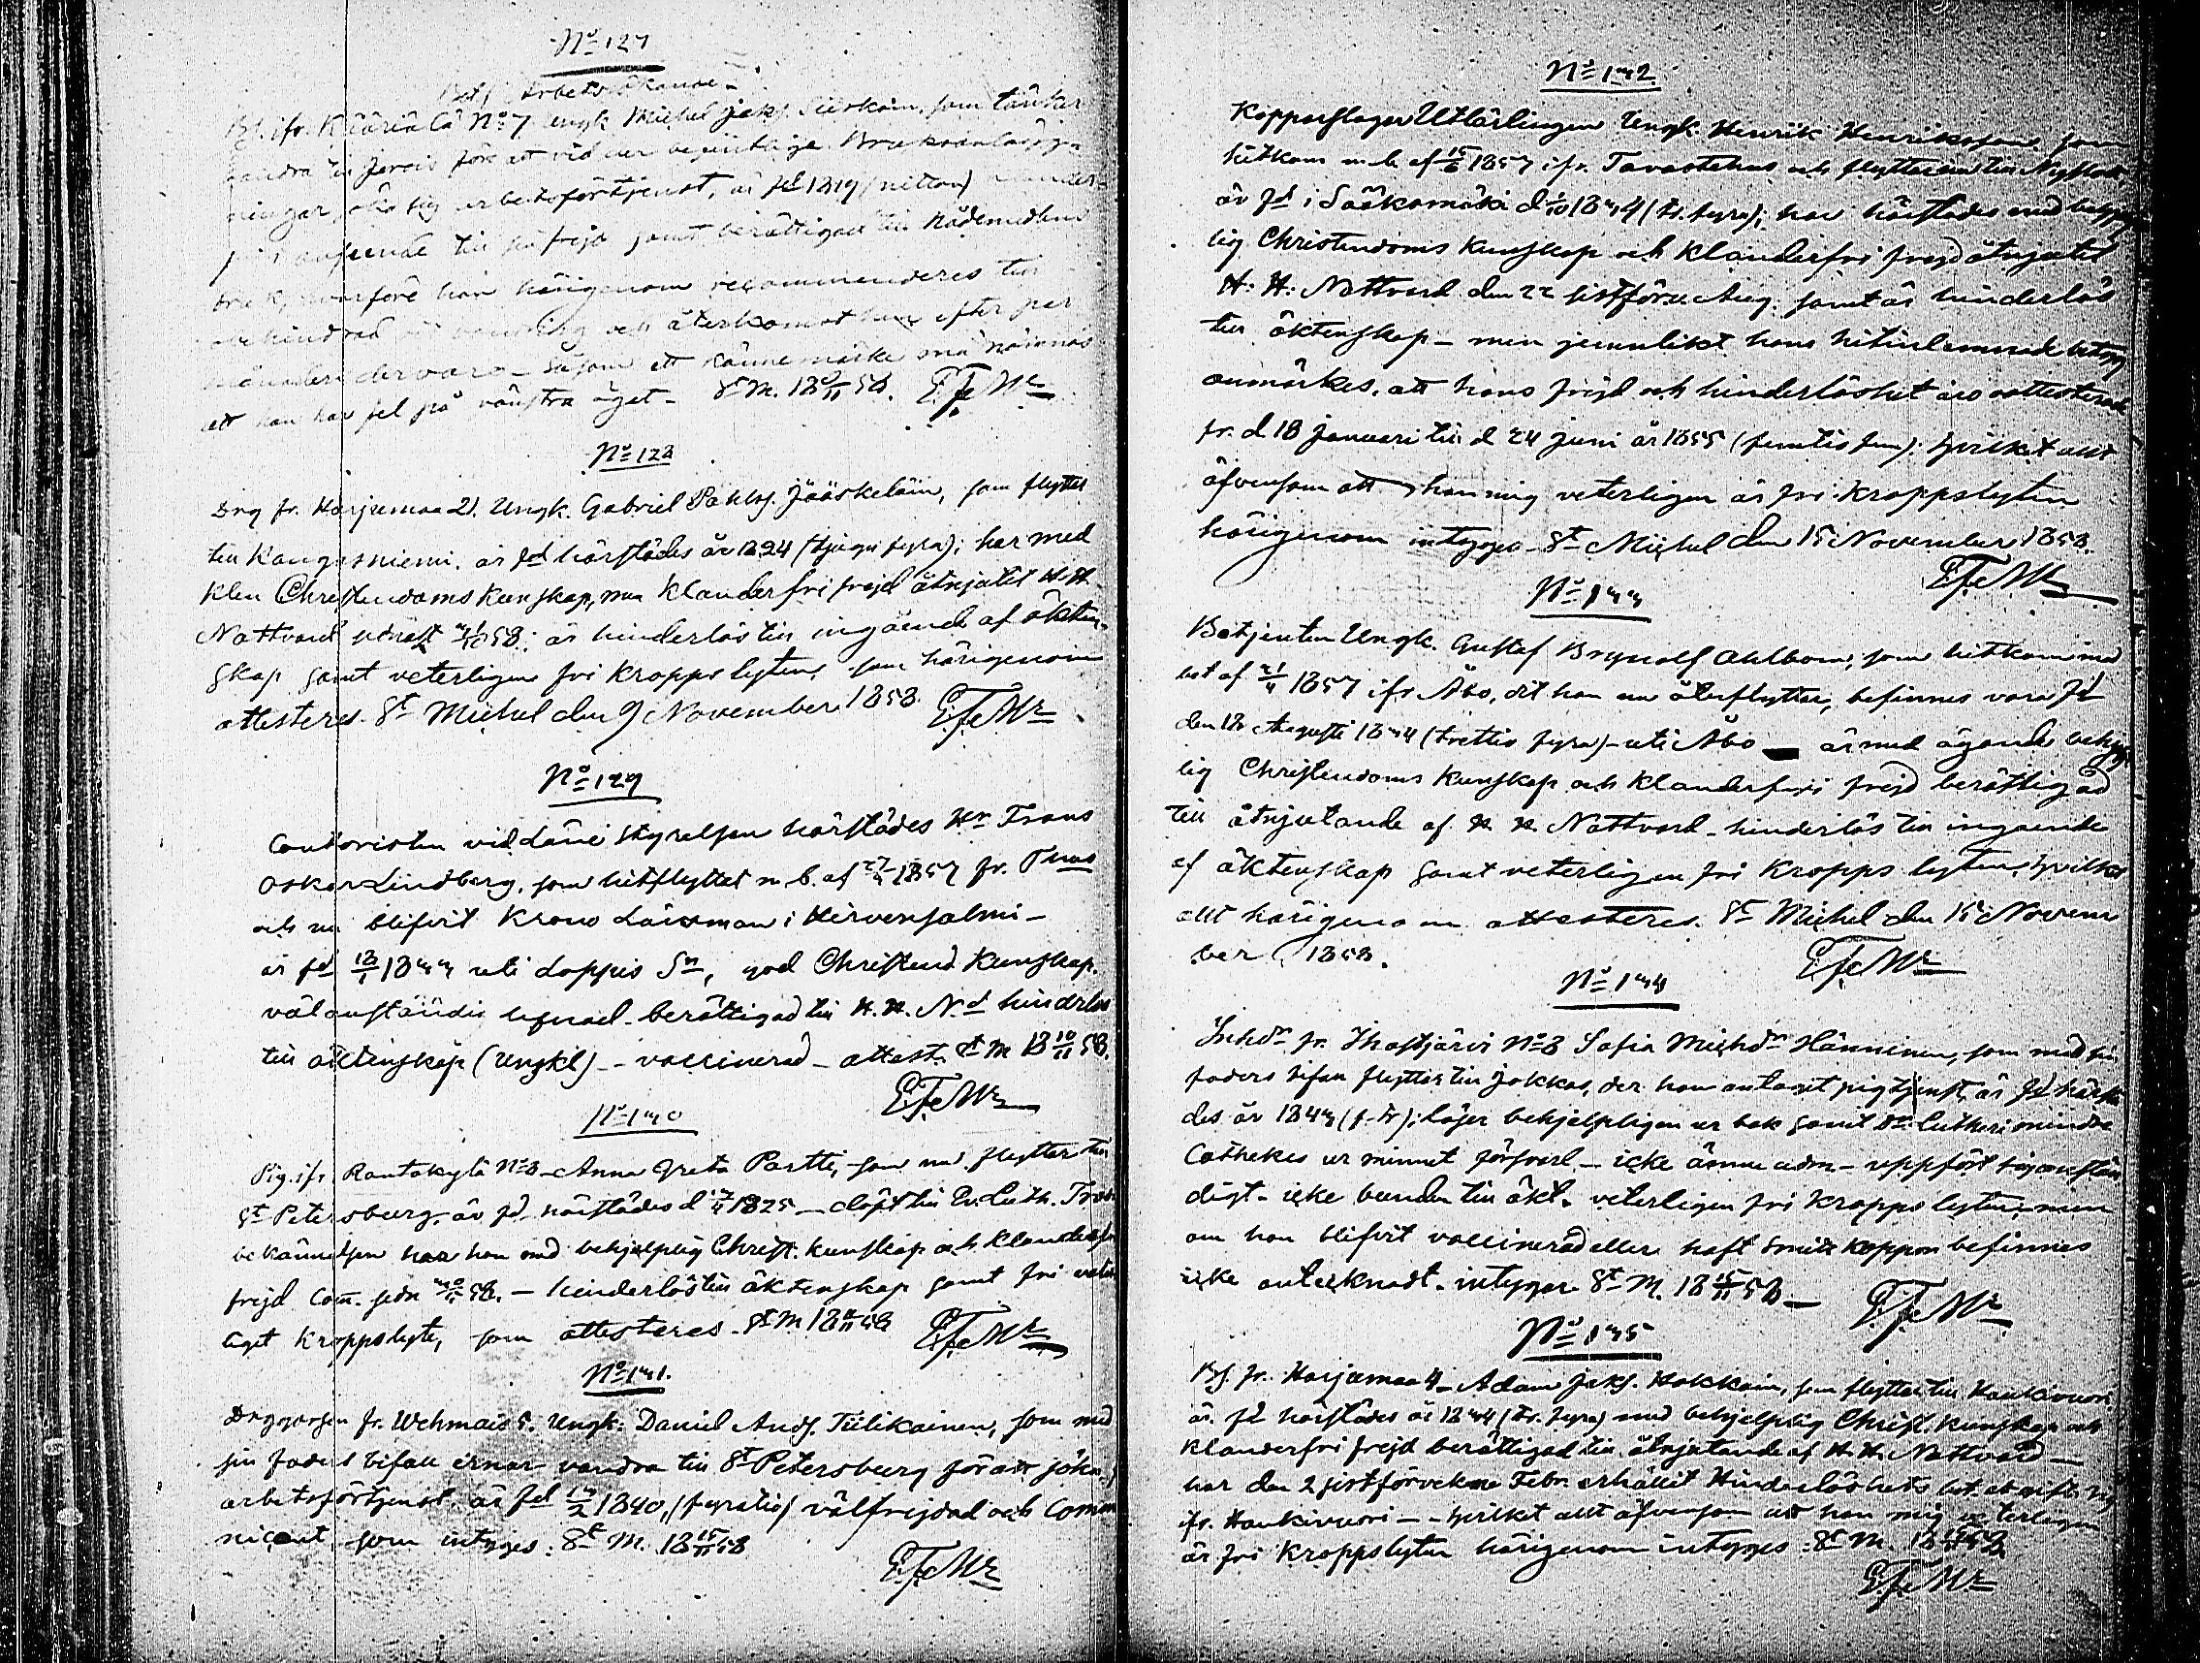 No 137
Bet. Arbetssökande
Bs. ifr. Kääriälä No 7 Ungk. Michel Jaks. som tänker
vandra till för att vid der befintliga
söka sig arbetsförtjenst, är fd 1819 (nitton)
anseende till sin frejd samt berättigad till Nådemedlens
bruk, hvarföre han härigenom recommenderes till
obehindrad vandring och återkomst hem efter par
månaders dervaro - Såsom ett kännemärke må nämnas
att han har fel på vänstra ögat - St M. 18 9/11 58. EFeMr
No 138
Drg fr. Harjumaa 2. Ungk. Gabriel Pahls. Jääskeläin, som flyttar
till Kangasniemi, är fd härstädes år 1824 (tjugu fyra); har med
klen Christendoms kunskap, men klanderfri frejd åtnjutit H. H.
Nattvard sednast 31/10 58; är hinderlös till ingående af äkten-
skap samt veterligen fri kroppslyten, som härigenom
attesteres. St Michel den 9 November 1858. EFeMr
No 139
Contoristen vid Läne styrelsen härstädes Hr Frans
Oskar Lindberg, som hitflyttat m. b. af 1857 fr.
och nu blifvit Krono Länsman i Hirvensalmi -
är fd 18/7 1833 uti Loppis Sn, god Christend. Kunskap.
välanständig lefnad - berättigad till H. H. N.d hinderlös
till äktenskap (Ungkl) - vaccinerad - attest. St M 18 10/11 58.
EFeMr
No 140
Pig. ifr Rantakylä No 8 - Anna Greta Partti, som nu flyttar till
St Petersburg, är fd härstädes d 1825 - döpt till Ev. Luth. Tros
bekännelsen har hon med behjelplig Christ. kunskap och klanderfri
frejd Com. sedn 58. - hinderlös till äktenskap samt fri veter
liget kroppslyte, som attesteres - St M 18 58 EFeMr
No 141.
Drggossen fr. Wehmais 5. Ungk. Daniel Ands. Tiilikainen, som med
sin faders bifall ärnar vandra till St Petersburg för att söka
arbetsförtjenst, är fd 1840, (fyratio) välfrejdad och Commu
nicant, som intyges: St M. 18 15/11 58
EFeMr
No 142
Kopparslagar Utlärlingen Ungk. Henrik Henriksson som
hitkom m. b. af 15/6 1857 ifr. Tavastehus och flyttar nu till Nyslott,
är fd i Sääksmäki d 1/10 1834 (tr. fyra); har härstädes med behjelp
lig Christendoms kunskap och klanderfri frejd åtnjutit
H. H. Nattvard den 22 sistförv. Aug. samt är hinderlös
till äktenskap - men jemnlikt hans hitinlemnade betyg
anmärkes, att hans frejd och hinderlöshet äro oattesterade
fr. d 18 Januari till d 24 Juni år 1855 (femtio fem): hvilket allt
äfvensom att han mig veterligen är fri kroppslyten
härigenom intyges - St Michel den 15 November 1858.
EFeMr
No 143
Betjenten Ungk. Gustaf Brynolf Ahlbom, som hitkom med
bet af 21/4 1857 ifr Åbo, dit han nu återflyttar, befinnes vara fd
den 18 Augusti 1834 (trettio fyra) - uti Åbo är med ägande behjelp
lig Christendoms Kunskap och klanderfri frejd berättigad
till åtnjutande af H. H. Nattvard - hinderlös till ingående
af äktenskap samt veterligen fri kropps lyten, hvilket
allt härigenom attesteres. St Michel den 15 Novem
ber 1858.
EFeMr
No 144
Inhdr fr. Ihastjärvi No 3 Sofia Michdr Hänninen, som med sin
faders bifall flyttar till Jokkas, der hon antagit pigtjenst, är fd härstä
des år 1843 (f. tr); läser behjelpligen ur bok samt Dr Lutheri mindre
Cathekes ur minnet försvarl. - icke ännu adm - uppfört sig anstän
digt - icke bunden till äkt. veterligen fri kropps lyten, men
om hon blifvit vaccinerad eller haft Smitt koppor befinnes
icke antecknadt. intygar St M. 18 15/11 58 - EFeMr
No 145
Bs. fr. Harjumaa 4 - Adam Jaks. Hokkain, som flyttar till Haukivuori
är fd härstädes år 1834 (tr. fyra) med behjelplig Christ. kunskap och
klanderfri frejd berättigad till åtnjutande af H. H. Nattvard -
har den 2 sistförvekne Febr. erhållit Hinderlöshets bet. at gifta sig
ifr. Haukivuori - hvilket allt äfvensom att han mig veterligen
är fri kroppslyten härigenom intyges - St M. 18 58
EFeMr